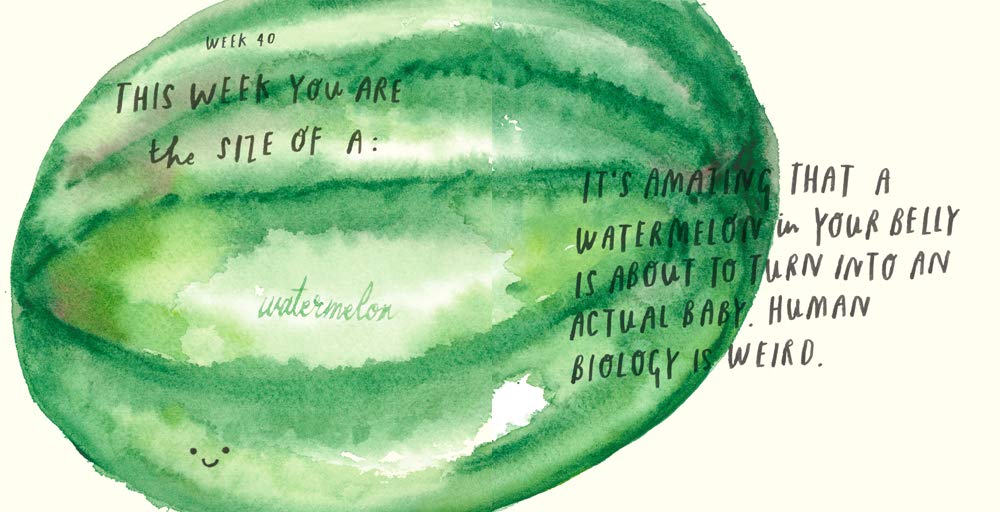 WEEK 40
THIS WEEK YOU ARE
the SIZE OF A:
watermelon
IT'S AMAZING THAT A
WATERMELON in YOUR BELLY
IS ABOUT TO TURN INTO AN
ACTUAL BABY. HUMAN
BIOLOGY IS WEIRD.